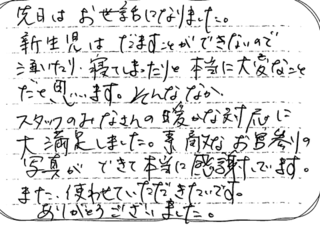 先日はお世話になりました。
新生児はだますことができないので
泣いたり寝てしまったりと本当に大変なこと
だと思います。そんななか、
スタッフのみなさんの暖かな対応に
大満足しました。素敵なお宮参りの
写真ができて本当に感謝しています。
また使わせていただきたいです。
ありがとうございました。